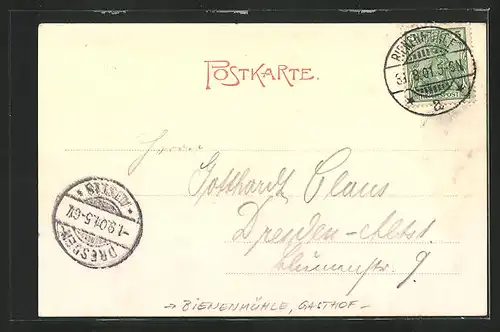 POSTKARTE.
BIENENMÜHLE
31.8.01.5-6N.
a
Herrn
Gotthardt Claus
Dresden-Altst.
Blumenstr. 9
DRESDEN-ALTST.18
-1.9.01.5-6V.
→ BIENENMÜHLE, GASTHOF -